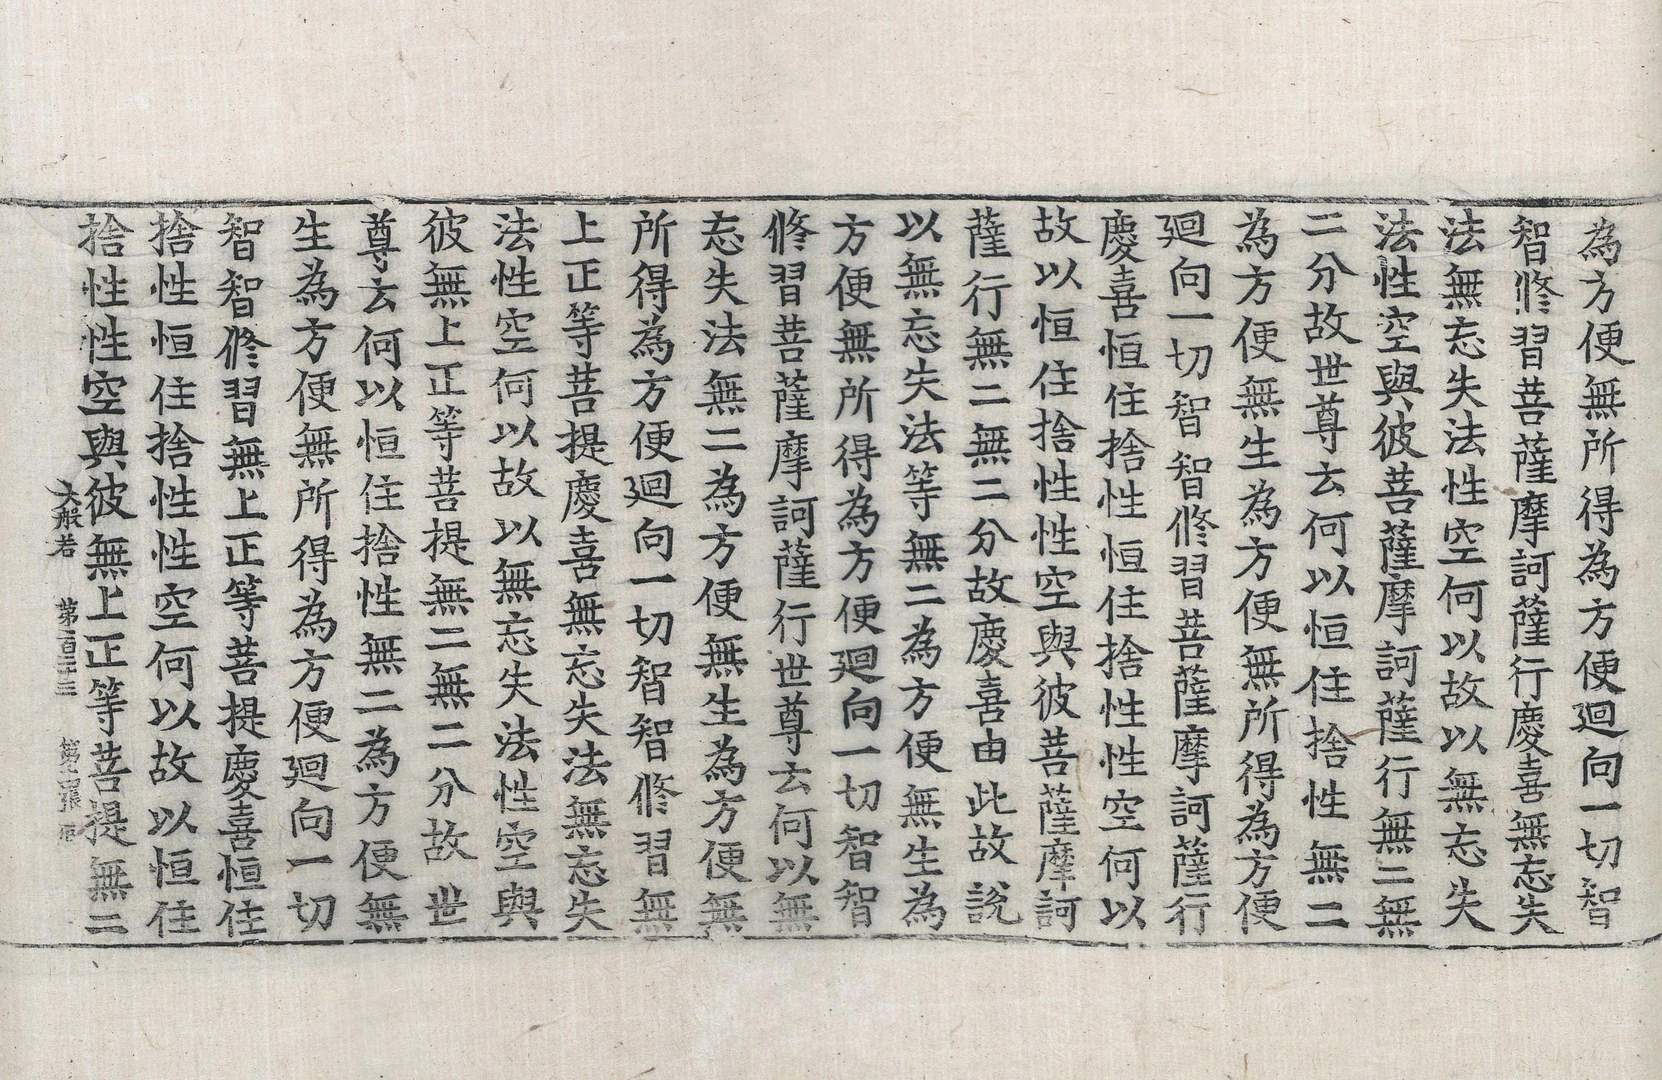 為方便無所得為方便迴向一切智
智修習菩薩摩訶薩行慶喜無忘失
法無忘失法性空何以故以無忘失
法性空與彼菩薩摩訶薩行無二無
二分故世尊云何以恒住捨性無二
為方便無生為方便無所得為方便
迴向一切智智修習菩薩摩訶薩行
慶喜恒住捨性恒住捨性性空何以
故以恒住捨性性空與彼菩薩摩訶
薩行無二無二分故慶喜由此故說
以無忘失法等無二為方便無生為
方便無所得為方便迴向一切智智
修習菩薩摩訶薩行世尊云何以無
忘失法無二為方便無生為方便無
所得為方便迴向一切智智修習無
上正等菩提慶喜無忘失法無忘失
法性空何以故以無忘失法性空與
彼無上正等菩提無二無二分故世
尊云何以恒住捨性無二為方便無
生為方便無所得為方便迴向一切
智智修習無上正等菩提慶喜恒住
捨性恒住捨性性空何以故以恒住
捨性性空與彼無上正等菩提無二
大般若 第 張